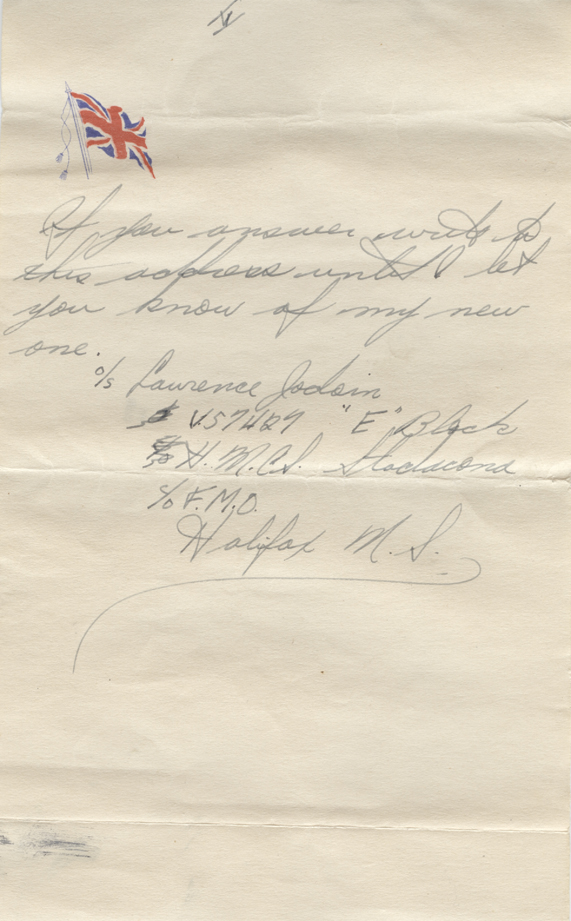 IV
If you answer write to
this address until I let
you know of my new
one.
O/S Lawrence Jodoin
V.57427 "E" Block
H.M.C.S. Stadacona
C/O F.M.O.
Halifax N.S.